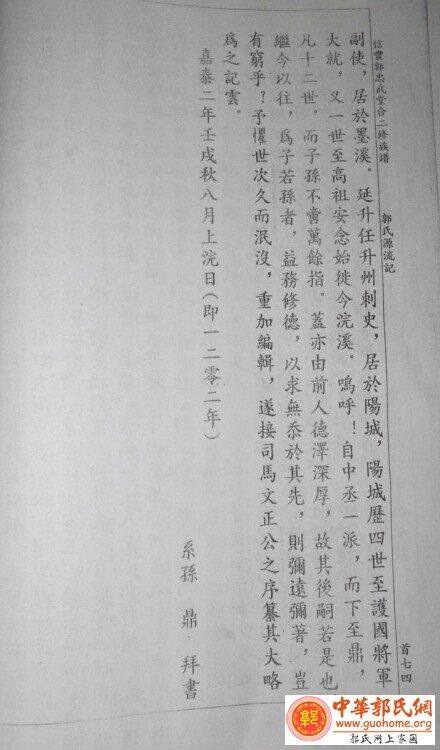 信豐郭忠武堂合二修族譜
郭氏源流記
首七四
副使，居於墨溪。延升任升州刺史，居於陽城，陽城歷四世至護國將軍
大就，又一世至高祖安念始徙今浣溪。嗚呼！自中丞一派，而下至鼎，
凡十二世。而子孫不啻萬餘指。蓋亦由前人德澤深厚，故其後嗣若是也
繼今以往，爲子若孫者，益務修德，以求無忝於其先，則彌遠彌著，豈
有窮乎？予懼世次久而泯沒，重加編輯，遂接司馬文正公之序纂其大略
爲之記雲。
嘉泰二年壬戌秋八月上浣日（即一二零二年）
系孫 鼎 拜書
中華郭氏網
www.guohome.org
郭氏网上家园